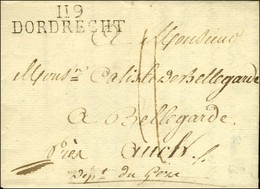 119
DORDRECHT
A Monsieur
Monsr. Calisle de Bellegarde
A Bellegarde
Près Auch
Dépt. du Gers